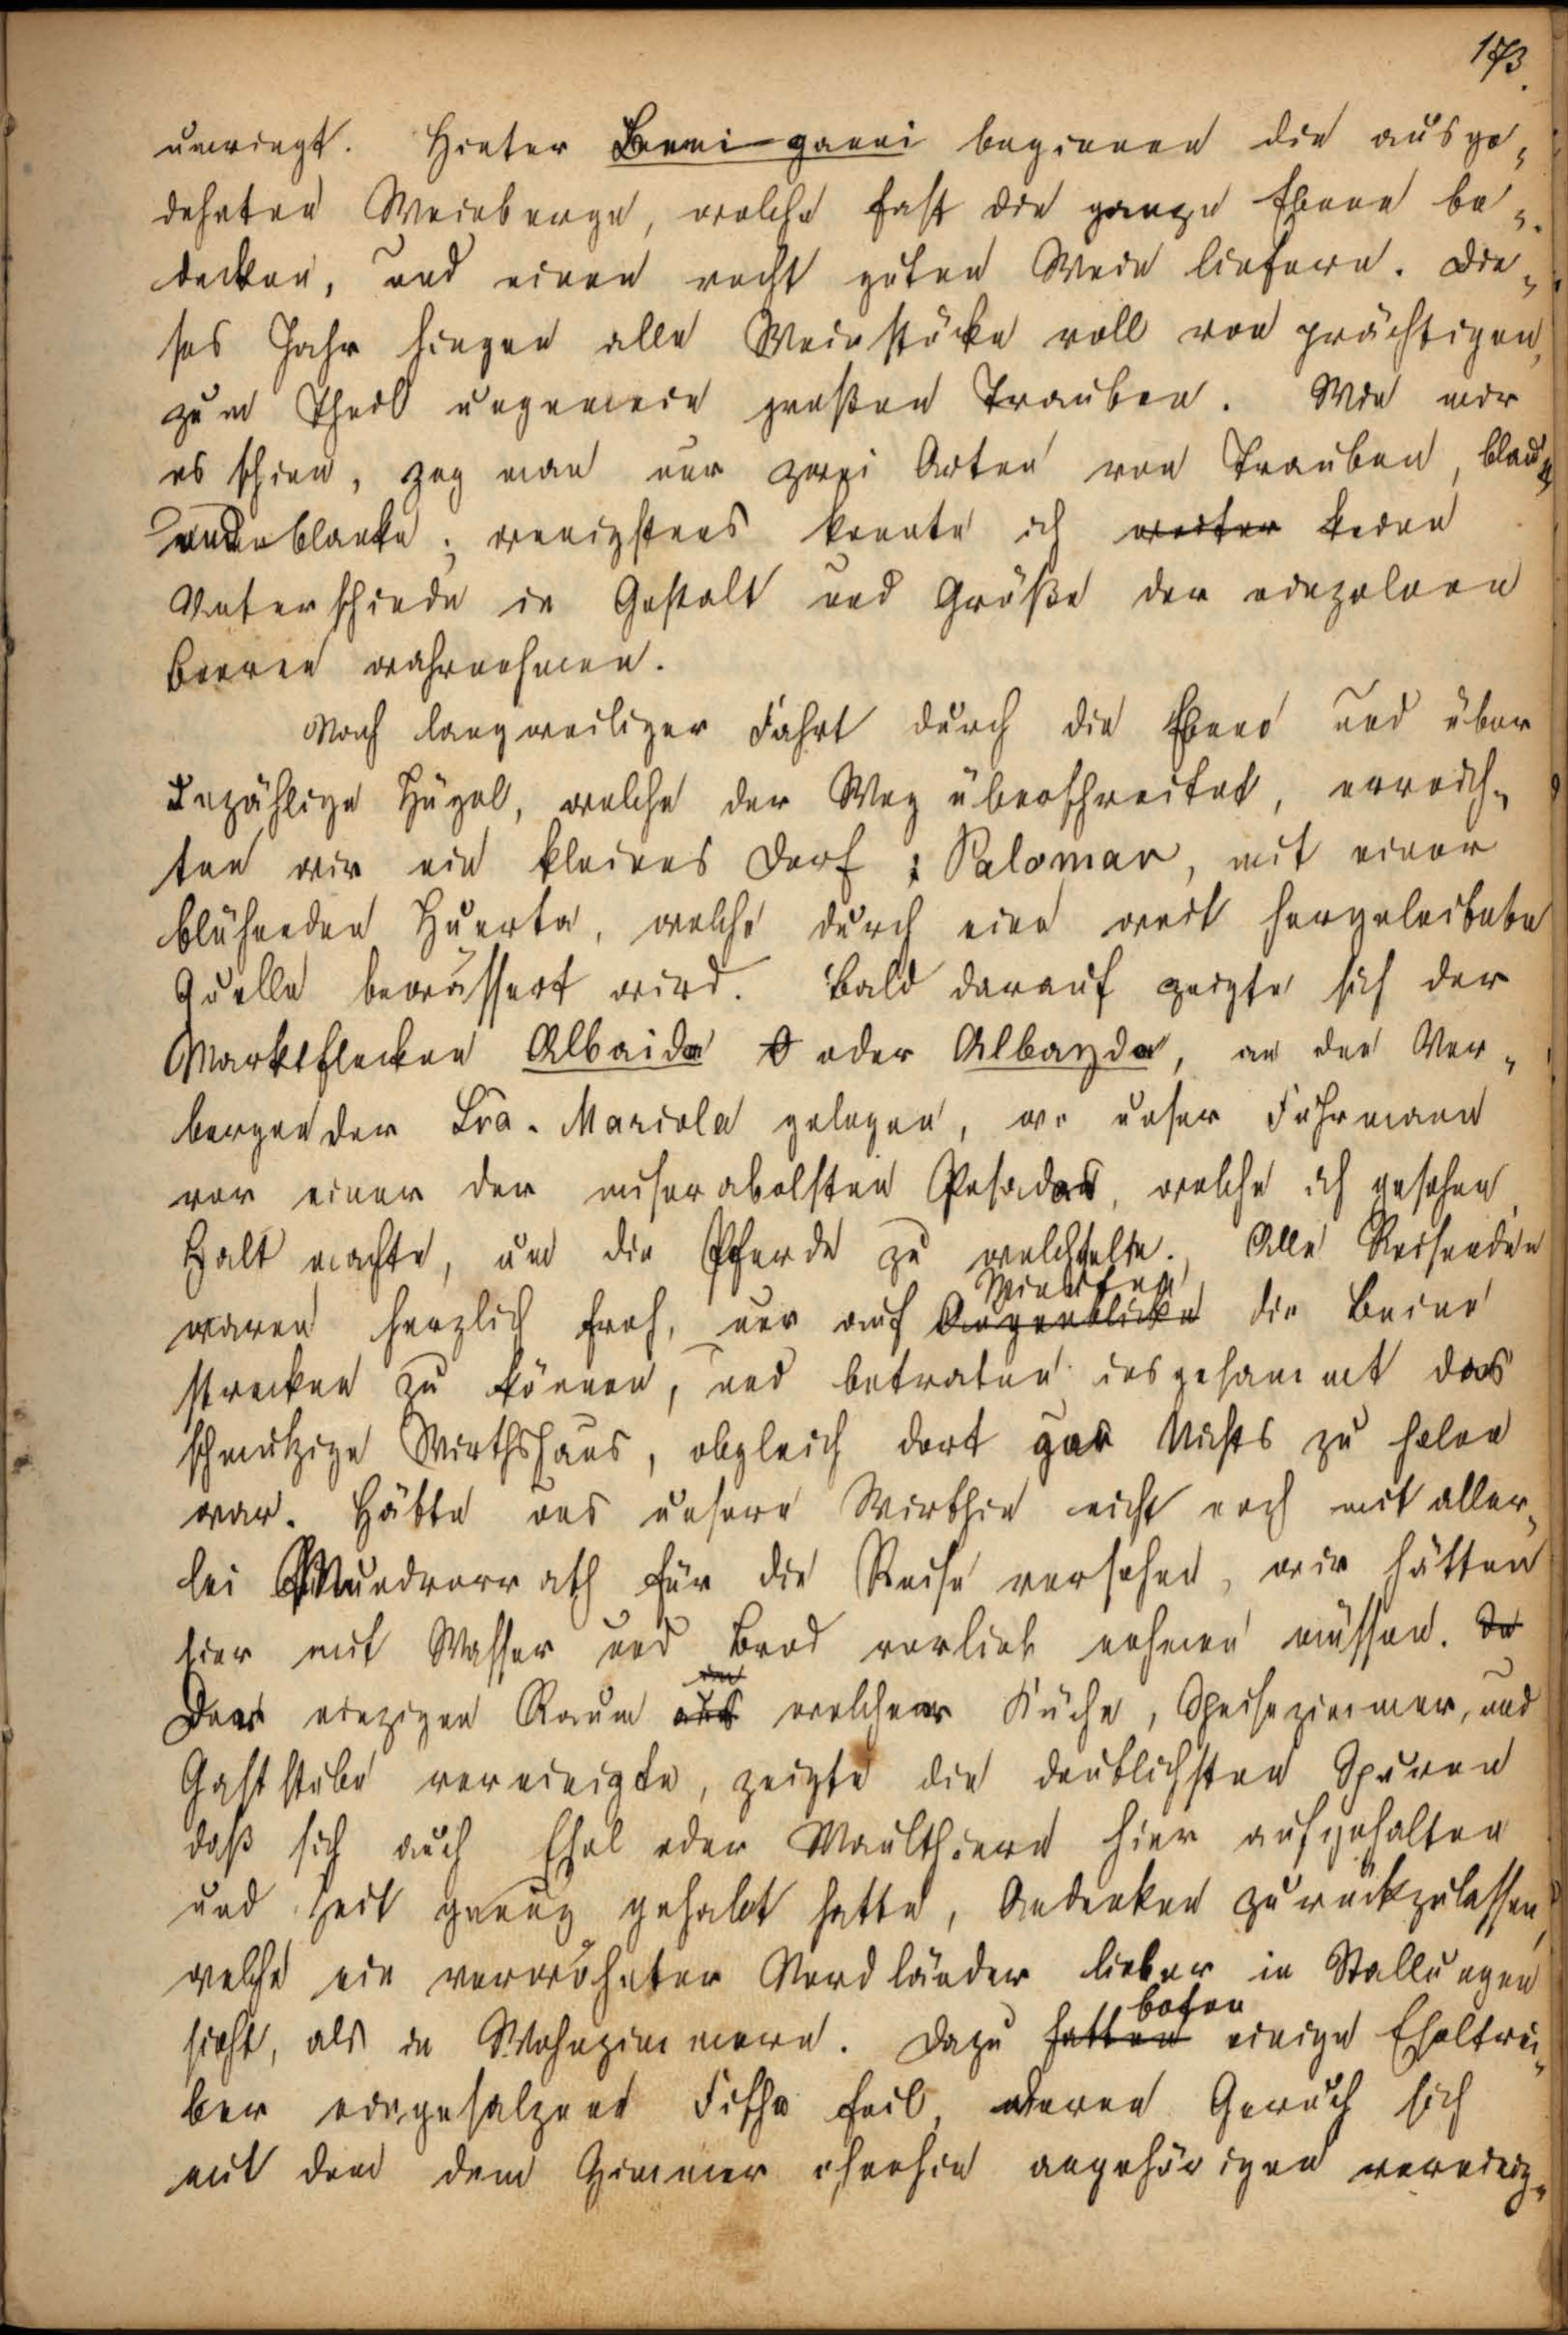 173.
umringt. Hinter Beni-ganni beginnen die ausge-
dehnten Weinberge, welche fast die ganze Ebene be-
decken, und einen recht guten Wein liefern. Die-
ses Jahr hingen alle Weinstöcke voll von prächtigen,
zum Theil ungemein großen Trauben. Wie mir
es schien, zog man nur zwei Arten von Trauben, blaue
und blanke; wenigstens konnte ich weiter keine
Unterschiede in Gestalt und Größe der einzelnen
Beeren wahrnehmen.
Nach langweiliger Fahrt durch die Ebene und über
unzählige Hügel, welche der Weg überschreitet, erreich-
ten wir ein kleines Dorf: Palomar, mit einer
blühenden Huerta, welche durch eine weit hergeleitete
Quelle bewässert wird. Bald darauf zeigte sich der
Marktflecken Albaida oder Albayda, an den Vor-
bergen der Sra. Mariola gelegen, wo unser Fuhrmann
vor einer der miserabelsten Posadas, welche ich gesehen,
Halt machte, um die Pferde zu wechseln. Alle Reisenden
Minuten
waren herzlich froh, nur auf Augenblicke die Beine
strecken zu können, und betraten insgesammt das
schmutzige Wirthshaus, obgleich dort gar Nichts zu holen
war. Hätte uns unsere Wirthin nicht noch mit aller-
lei Mundvorrath für die Reise versehen, wir hätten
hier mit Wasser und Brod vorlieb nehmen müssen. De
Der einzigen Raum aus welcher Küche, Speisezimmer, und
Gaststube vereinigte, zeigte die deutlichsten Spuren
daß sich auch Esel oder Maulthiere hier aufgehalten
und Zeit genug gehabt hatte, Andenken zurückzulassen,
welche ein verwöhnter Nordländer lieber in Stallungen
sieht, als in Wohnzimmern. Dazu hatten boten einige Eseltrei-
ber eingesalzene Fische feil, deren Geruch sich
mit dem dem Zimmer ohnehin angehörigen vereinig-